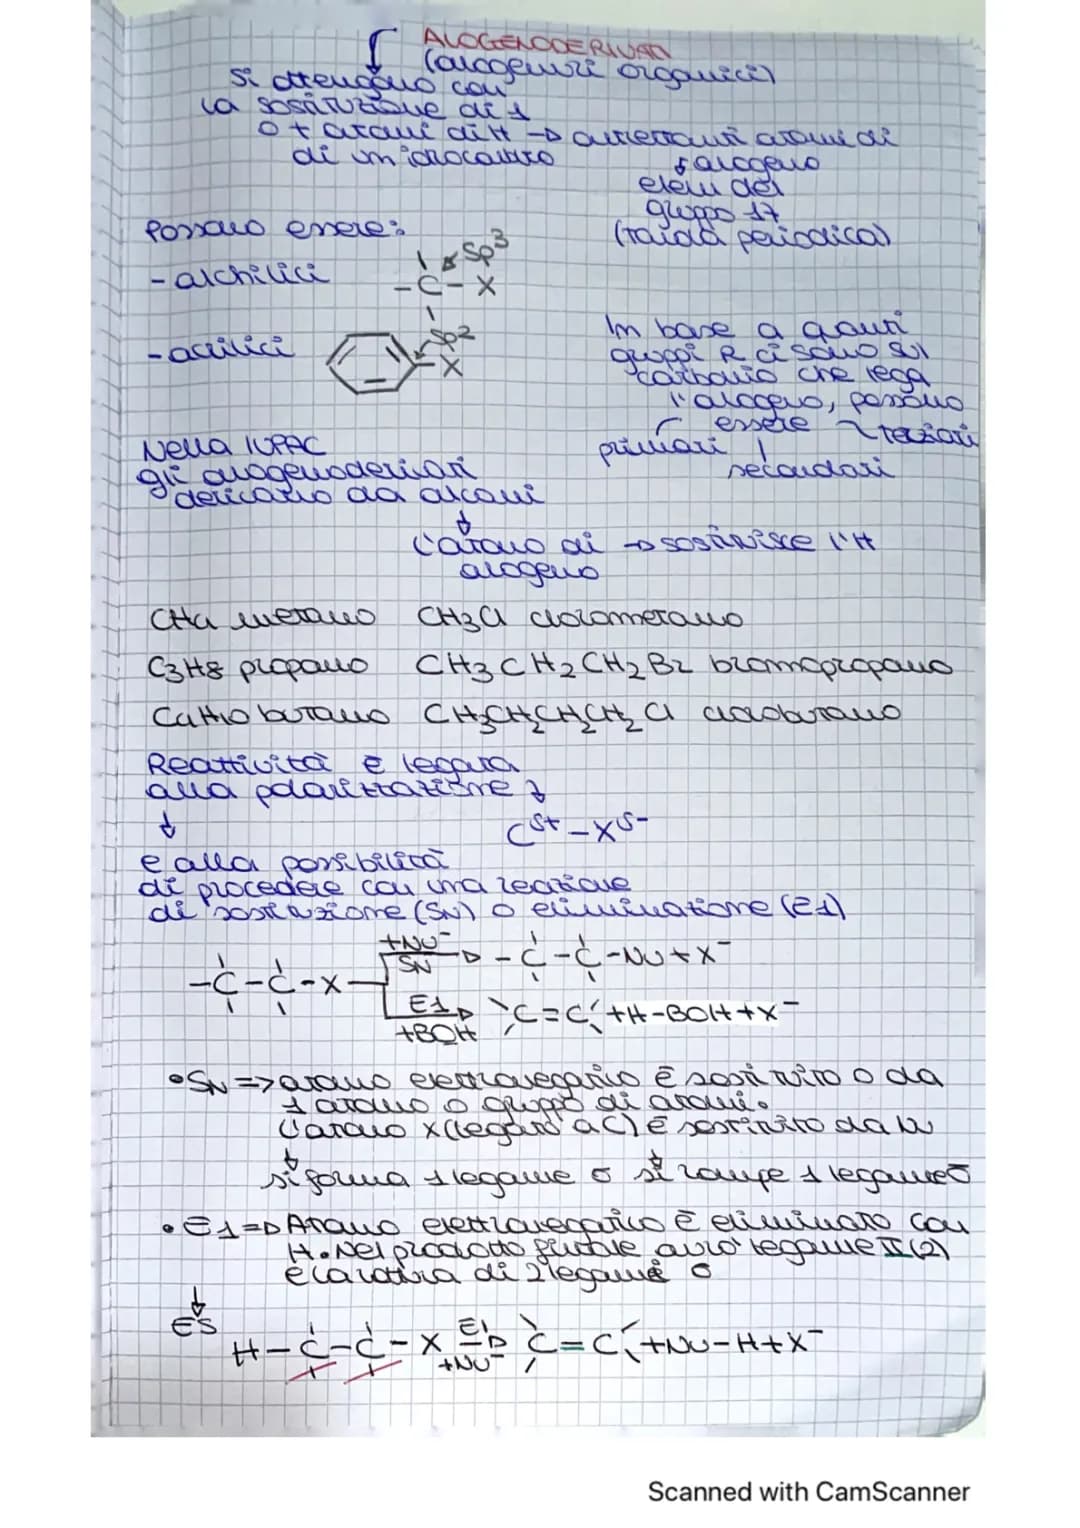 ALOGENODERIVATI
(alogenuri organici)
Si ottengono con
la sostituzione di 1
o + atomi di H → altrettanti atomi di
di un idrocarburo
alogeno
elem del
gruppo 17
(tavola periodica)
Possono essere:
sp3
- alchilici
- C - X
sp2
- arilici
X
In base a quanti
gruppi R ci sono sul
carbonio che lega
l'alogeno, possono
essere
terziari
primari
secondari
Nella IUPAC
gli alogenoderivati
derivano da alcani
L'atomo di → sostituisce l'H
alogeno
CH4 metano CH3Cl clorometano
C3H8 propano CH3CH2CH2Br bromopropano
C4H10 butano CH3CH2CH2CH2Cl clorobutano
Reattività è legata
alla polarizzazione
Cδ+ - Xδ-
e alla possibilità
di procedere con una reazione
di sostituzione (SN) o eliminazione (E1)
+Nu-
SN
-C-C-Nu+X-
-C-C-X
E1
C=C +H-BOH+X-
+BOH
• SN => atomo elettronegativo è sostituito o da
1 atomo o gruppo di atomi.
L'atomo X(legato a C) è sostituito da
si forma 1 legame σ si rompe 1 legame σ
• E1 => Atomo elettronegativo è eliminato con
H. Nel prodotto finale avrò legame π(2)
è la rottura di 2 legami σ
ES
H-C-C-X E1 C=C +Nu-H+X-
+Nu-
Scanned with CamScanner